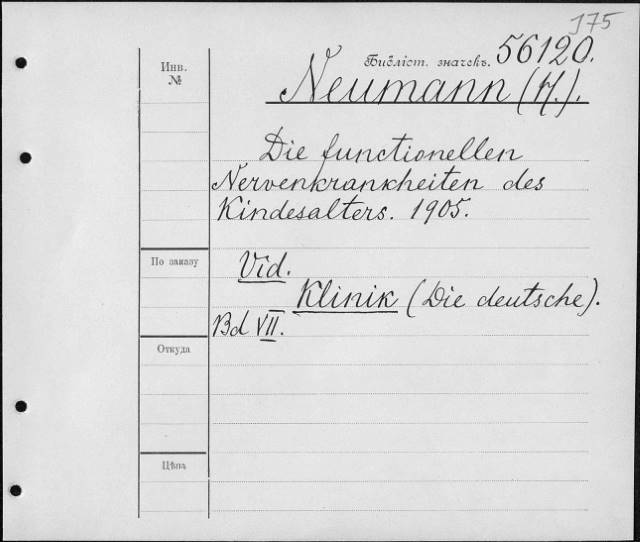 175
Инв.
№
Библіот. значекъ. 56120.
Neumann (H.).
Die functionellen
Nervenkrankheiten des
Kindesalters. 1905.
По заказу
Vid.
Klinik (Die deutsche).
Bd VII.
Откуда
Цѣна